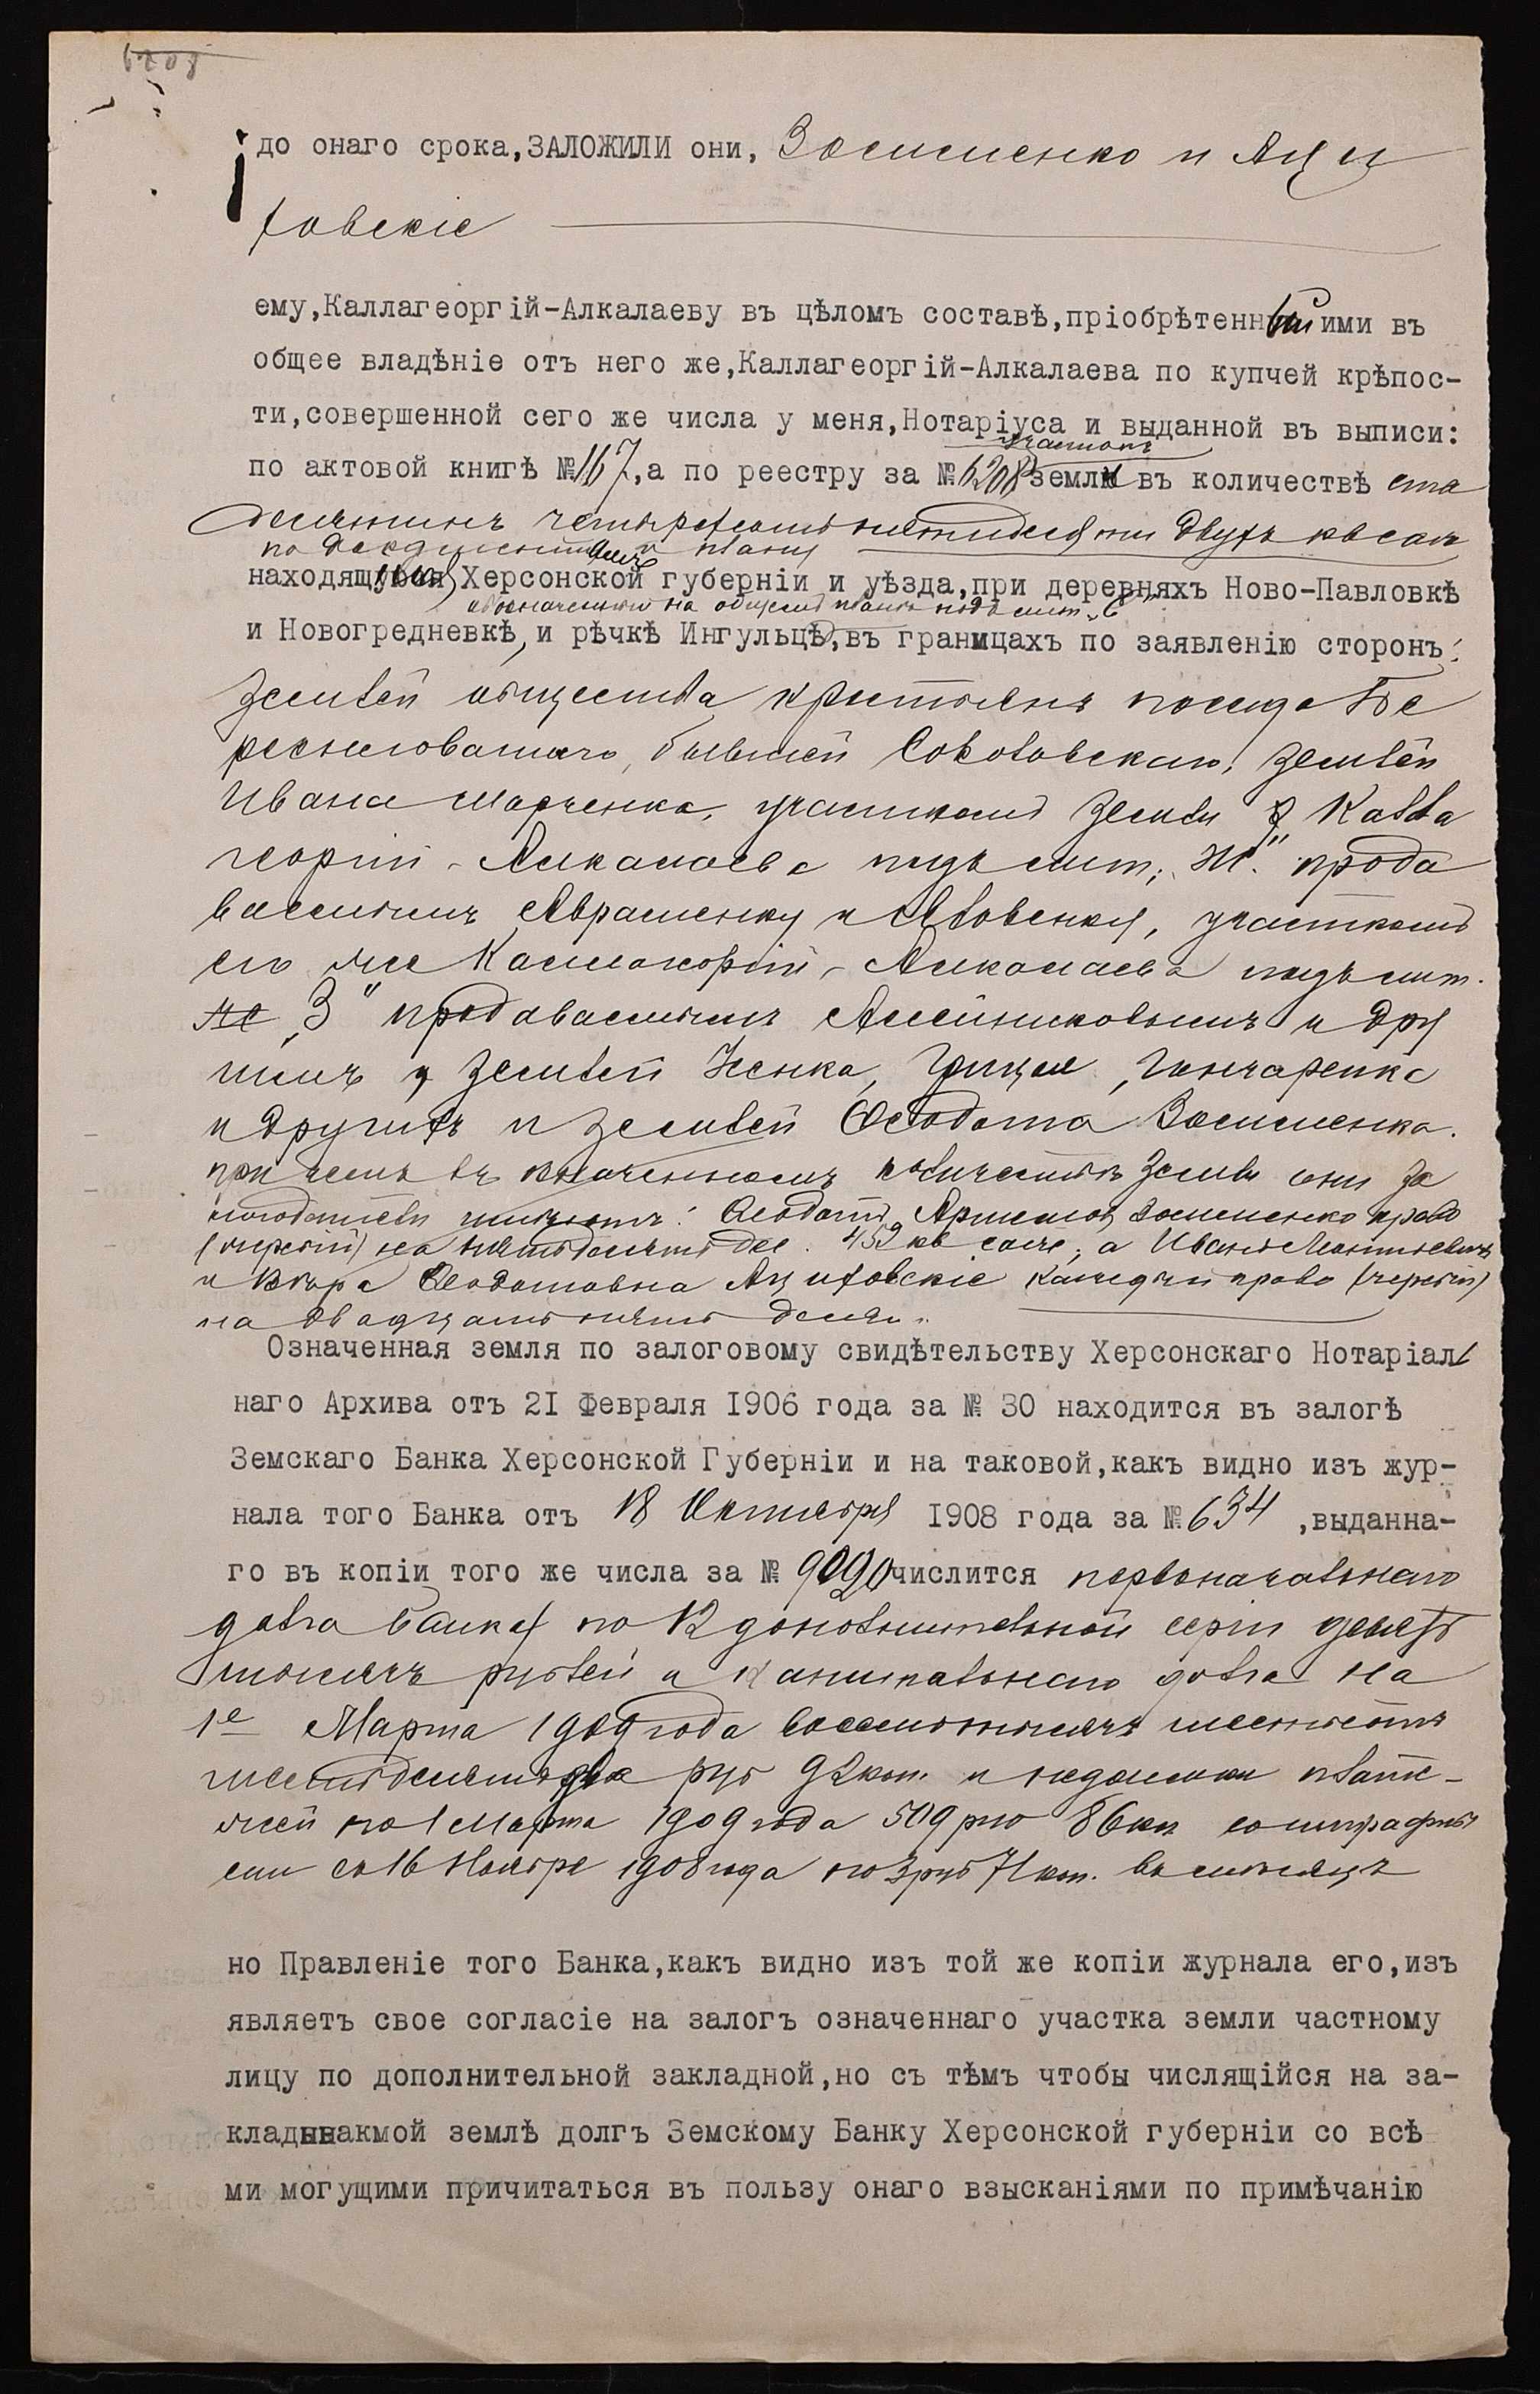 6208
до онаго срока,ЗАЛОЖИЛИ они, Зосименко и Яци
ховскіе
ему,Каллагеоргій-Алкалаеву въ цѣломъ составѣ,пріобрѣтенный ими въ
общее владѣніе отъ него же,Каллагеоргій-Алкалаева по купчей крѣпос-
ти,совершенной сего же числа у меня,Нотаріуса и выданной въ выписи:
участокъ
по актовой книгѣ №167,а по реестру за №6208 земли въ количествѣ ста
десятинъ четырехсотъ пятидесяти двухъ кв саж
по документамъ и плану
находящійся Херсонской губерніи и уѣзда,при деревняхъ Ново-Павловкѣ
обозначенный на общемъ планѣ подъ лит. „Е"
и Новогредневкѣ, и рѣчкѣ Ингульцѣ,въ границахъ по заявленію сторонъ:
землей общества крестьянъ посада Бе
резнеговатаго, бывшей Соколовскаго, землей
Ивана Марченка, участкомъ земли Калла
георгій-Алкалаева подъ лит. „Ж" прода
ваемымъ Авраменку и Яловенку, участкомъ
его же Каллагеоргій-Алкалаева подъ лит.
„З" продаваемымъ Алейниковымъ и дру
гимъ, землей Ненка, Грицая, Гончаренка
и другихъ и землей Феодота Зосименка.
при чемъ въ означенномъ количествѣ земли они за
логодатели имѣютъ: Феодотъ Артемовъ Зосименко право
(жеребій) на пятьдесятъ дес. 452 кв саж, а Иванъ Леонтьевичъ
и Вѣра Феодотовна Яциховскіе каждый право (жеребій)
на двадцать пять десят.
Означенная земля по залоговому свидѣтельству Херсонскаго Нотаріаль
наго Архива отъ 21 Февраля 1906 года за № 30 находится въ залогѣ
Земскаго Банка Херсонской Губерніи и на таковой,какъ видно изъ жур-
нала того Банка отъ 18 Октября 1908 года за №634 ,выданна-
го въ копіи того же числа за № 9090 числится первоначальнаго
долга Банку по 12 дополнительной серіи девять
тысячъ рублей и капитальнаго долга на
1е Марта 1909 года восемь тысячъ шестьсотъ
шестьдесятъ два руб 92 коп. и недоимки плате-
жей по 1 Марта 1909 года 509 руб 86 коп со штрафны
ми съ 16 Ноября 1908 года по 3 руб 71 коп. въ мѣсяцъ
но Правленіе того Банка,какъ видно изъ той же копіи журнала его,изъ
являетъ свое согласіе на залогъ означеннаго участка земли частному
лицу по дополнительной закладной,но съ тѣмъ чтобы числящійся на за-
кладываемой землѣ долгъ Земскому Банку Херсонской губерніи со всѣ
ми могущими причитаться въ пользу онаго взысканіями по примѣчанію